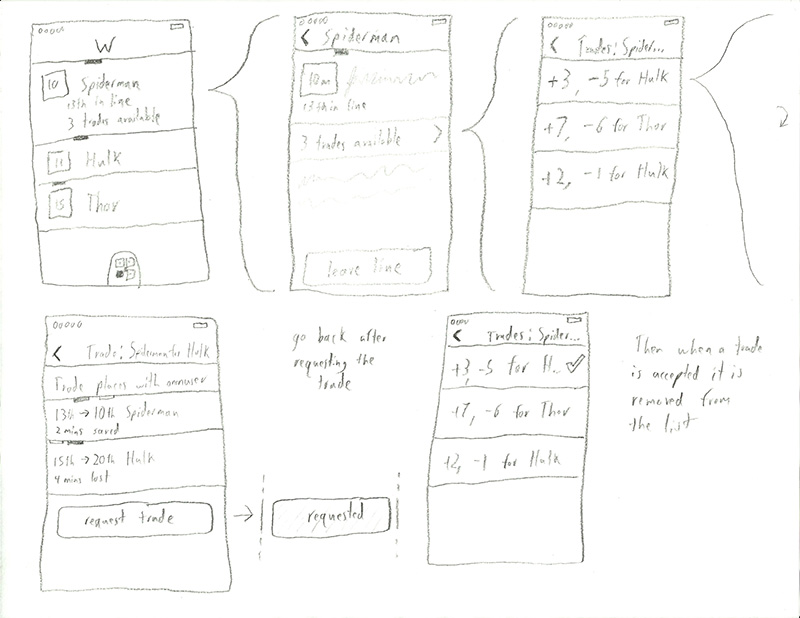 W
10
Spiderman
13th in line
3 trades available
11
Hulk
15
Thor
Spiderman
10m
13th in line
3 trades available
leave line
Trades: Spider...
+3, -5 for Hulk
+7, -6 for Thor
+2, -1 for Hulk
Trade: Spiderman for Hulk
Trade places with omnuser
13th → 10th Spiderman
2 mins saved
15th → 20th Hulk
4 mins lost
request trade
go back after
requesting the
trade
requested
Trades: Spider...
+3, -5 for H.. ✓
+7, -6 for Thor
+2, -1 for Hulk
Then when a trade
is accepted it is
removed from
the list